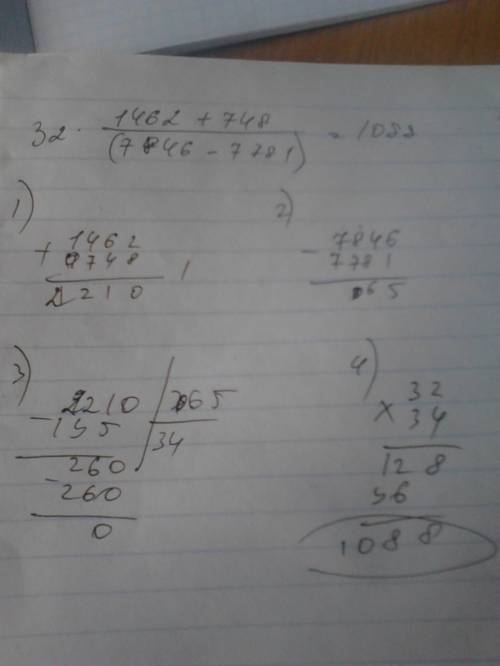 32 · 1462 + 748 / (7846 - 7781) = 1088
1)
+ 1462
748
2210
2)
- 7846
7781
65
3)
- 2210 | 65
195 | 34
- 260
260
0
4)
× 32
34
128
96
1088